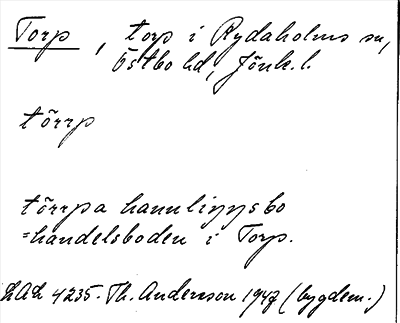 Torp, torp i Rydaholms sn,
Östbo hd, Jönk. l.
tõrrp
tõrrpa hannliŋŋsbo
=handelsboden i Torp.
LAL 4235. Th. Andersson 1947 (bygdem.)